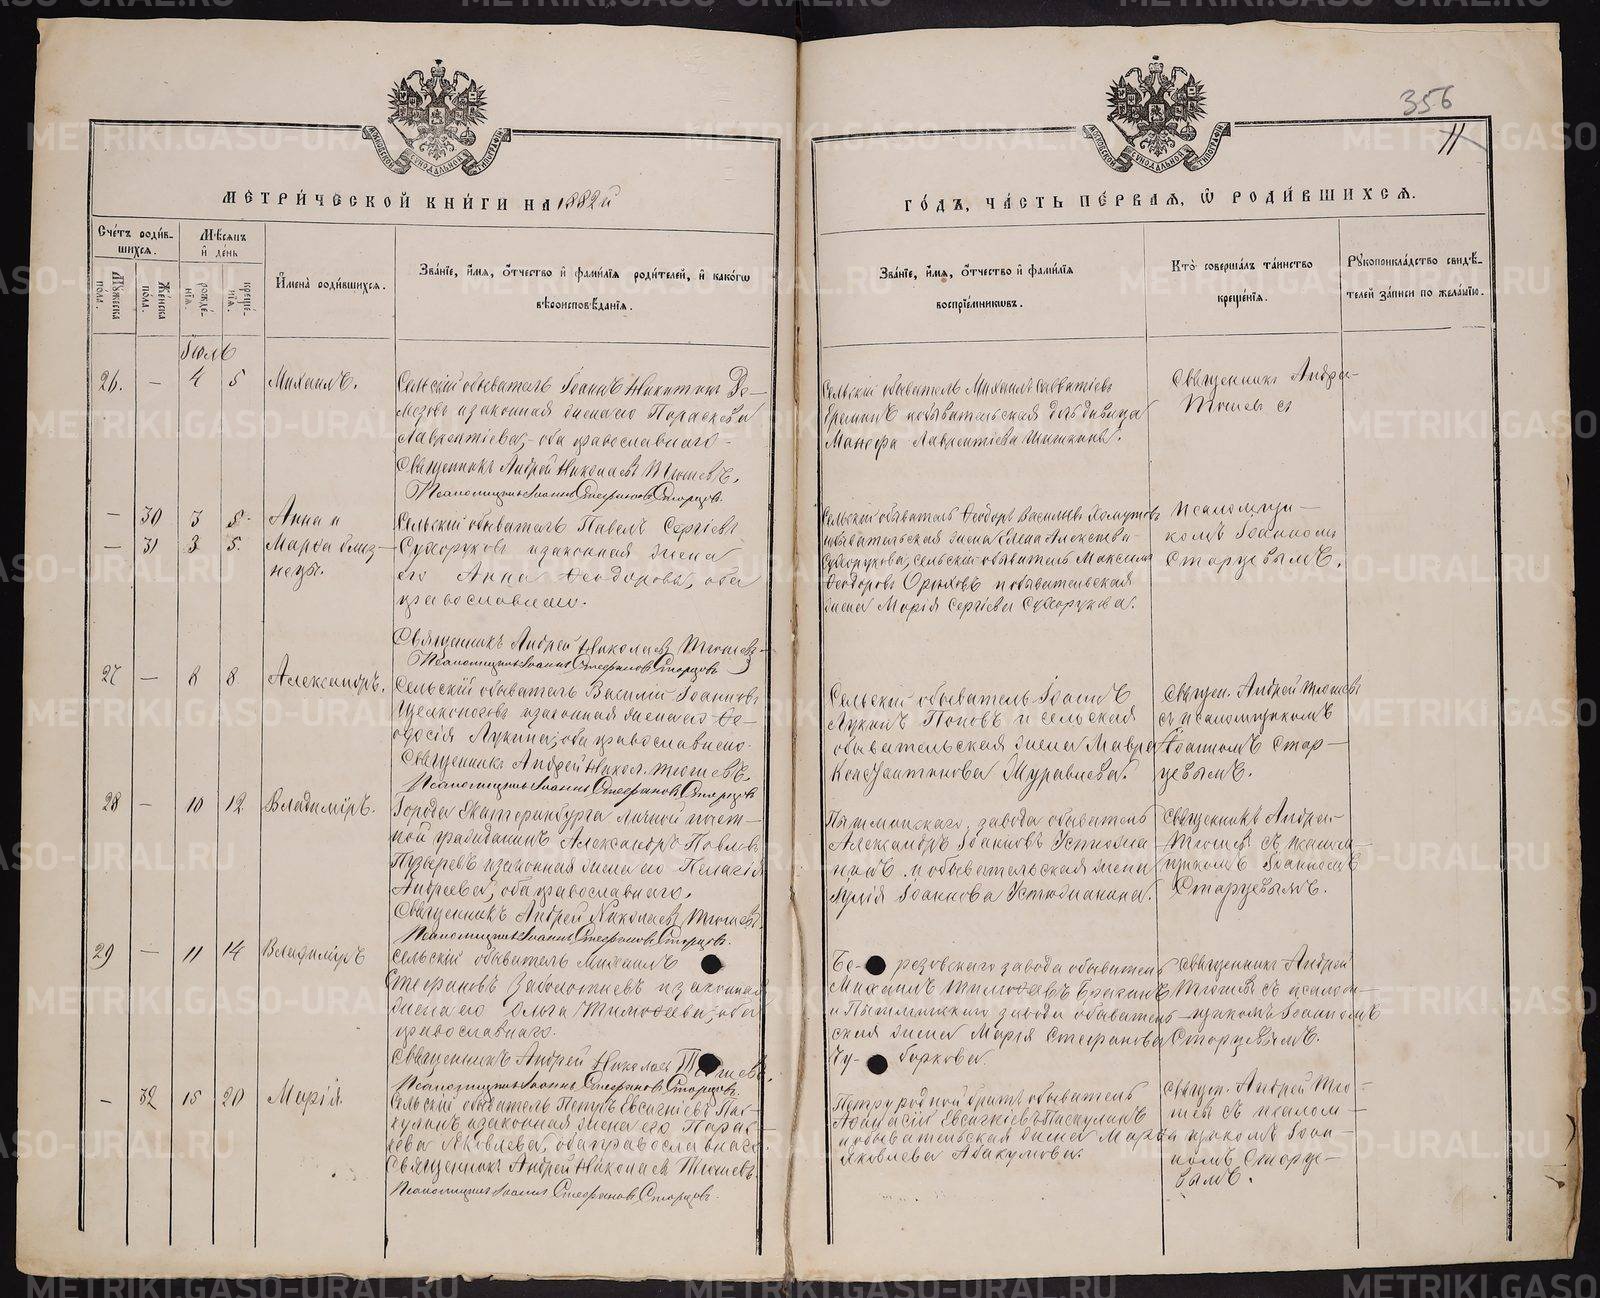 356
11
МОСКОВСКОЙ СѴНОДАЛЬНОЙ ТИПОГРАФІИ
МОСКОВСКОЙ СѴНОДАЛЬНОЙ ТИПОГРАФІИ
МЕТРИ́ЧЕСКОЙ КНИ́ГИ НА 1882й
ГО́ДЪ, ЧА́СТЬ ПЕ́РВАЯ, Ѡ РОДИ́ВШИХСЯ.
Сче́тъ роди́в-
шихся.
Му́жеска по́ла.
Же́нска по́ла.
Мѣ́сяцъ
и̂ де́нь
рожде́-
нїя.
креще́-
нїя.
И̂мена̀ роди́вшихся.
Зва́нїе, и̂́мя, о̂́тчество и̂ фами́лїя роди́телей, и̂ како́гѡ
вѣроисповѣ́данїя.
Зва́нїе, и̂́мя, о̂́тчество и̂ фами́лїя
воспрїе́мниковъ.
Кто̀ соверша́лъ та́инство
креще́нїя.
Рꙋкоприкла́дство свидѣ́-
телей за́писи по жела́нїю.
Іюль
26. — 4 5 Михаилъ.
Сельскій обыватель Іоаннъ Никитинъ Ре-
мезовъ и законная жена его Параскева
Лаврентіева, оба православнаго.
Священникъ Андрей Николаевъ Тюшевъ.
Псаломщикъ Іоаннъ Стефановъ Старцовъ.
Сельскій обыватель Михаилъ Савватіевъ
Ереминъ и обывательская дочь девица
Манефа Лаврентіева
Священникъ Андрей
Тюшевъ съ
— 30 3 5. Анна и
— 31 3 5. Марѳа близ-
нецы.
Сельскій обыватель Павелъ Сергіевъ
Сухоруковъ и законная жена
его Анна Ѳеодорова, оба
православнаго.
Священникъ Андрей Николаевъ Тюшевъ
Псаломщикъ Іоаннъ Стефановъ Старцовъ
Сельскій обыватель Ѳеодоръ Васильевъ Хомутовъ
и обывательская жена Елена Алексеева
Сухорукова; сельскій обыватель Максимъ
Ѳеодоровъ и обывательская
жена Марія Сергіева Сухорукова.
псаломщи-
комъ Іоанномъ
Старцевымъ.
27 — 8 8 Александръ.
Сельскій обыватель Василій Іоанновъ
Щелконоговъ и законная жена его Ѳе-
одосія Лукина, оба православнаго.
Священникъ Андрей Никол. Тюшевъ.
Псаломщикъ Іоаннъ Стефановъ Старцовъ
Сельскій обыватель Іоаннъ
Лукинъ Поповъ и сельская
обывательская жена Мавра
Константинова Муравьева.
Священ. Андрей Тюшевъ
съ псаломщикомъ
Іоанномъ Стар-
цевымъ.
28 — 10 12 Владиміръ.
Города Екатеринбурга личной почет-
ной гражданинъ Александръ Павловъ
Пузыревъ и законная жена его Пелагія
Андреева, оба православнаго.
Священникъ Андрей Николаевъ Тюшевъ.
Псаломщикъ Іоаннъ Стефановъ Старцовъ.
Пышминскаго завода обыватель
Александръ Іоанновъ Устюжа-
нинъ и обывательская жена
Іоаннова Устюжанина.
Священникъ Андрей
Тюшевъ съ псалом-
щикомъ Іоанномъ
Старцевымъ.
29 — 11 14 Владиміръ
Сельскій обыватель Михаилъ
Стефановъ Заболотневъ и законная
жена его Ольга Тимоѳеева, оба
православнаго.
Священникъ Андрей Николаевъ Тюшевъ.
Псаломщикъ Іоаннъ Стефановъ Старцовъ.
Бе- резовскаго завода обыватель
Михаилъ Тимоѳеевъ
и Пышминскаго завода обыватель-
ская жена Марія Стефанова
Чу- баркова
Священникъ Андрей
Тюшевъ съ псалом-
щикомъ Іоанномъ
Старцевымъ.
— 32 15 20 Марія.
Сельскій обыватель Петръ Евсигніевъ Пас-
кулинъ и законная жена его Парас-
кева Яковлева, оба православнаго.
Священникъ Андрей Николаевъ Тюшевъ.
Псаломщикъ Іоаннъ Стефановъ Старцовъ.
Петру родной братъ обыватель
Аѳанасій Евсигніевъ Паскулинъ
и обывательская жена Марѳа
Яковлева Абакумова.
Священ. Андрей Тю-
шевъ съ псалом-
щикомъ Іоан-
номъ Старце-
вымъ.
METRIKI.GASO-URAL.RU